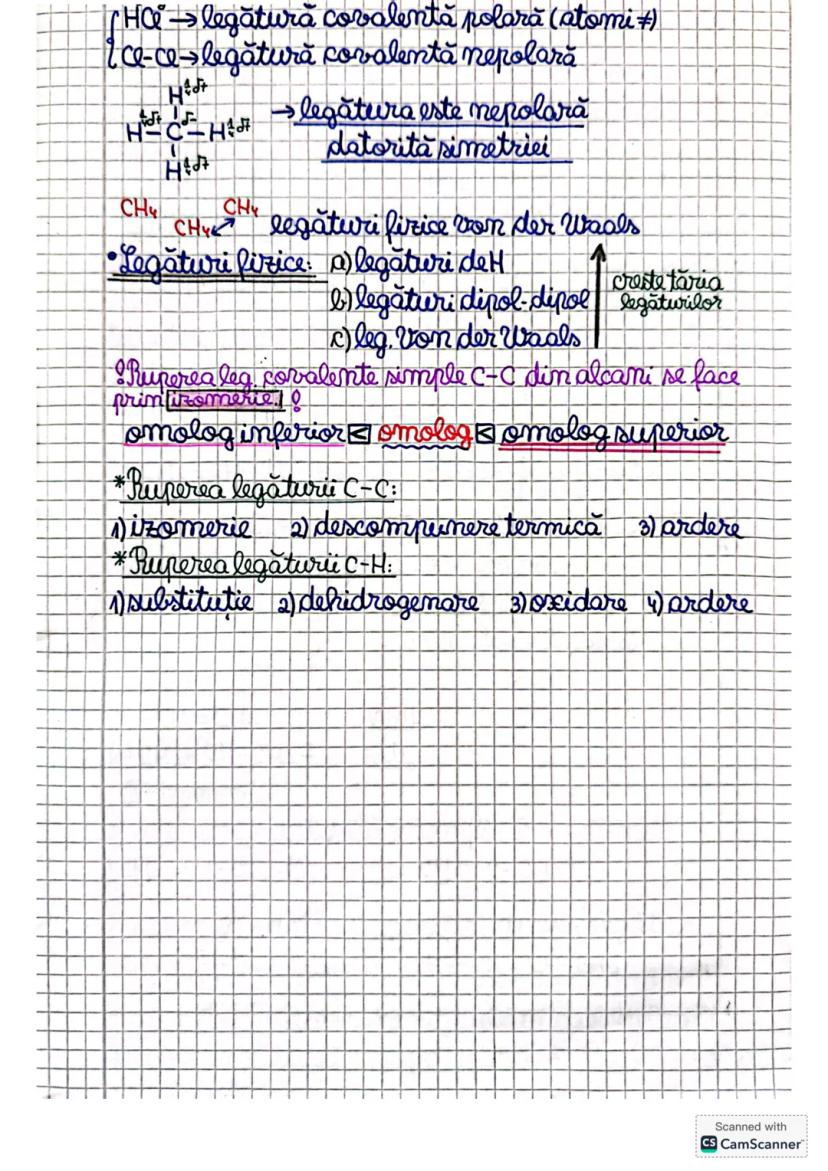 HCl → legătură covalentă polară (atomi ≠)
Cl-Cl → legătură covalentă nepolară
H¼δ+
¼δ+ δ-
H-C-H¼δ+
H¼δ+
→ legătura este nepolară
datorită simetriei
CH4 CH4
CH4 legături fizice Van der Waals
• Legături fizice: a) legături de H
b) legături dipol-dipol
c) leg. Van der Waals
crește tăria
legăturilor
! Ruperea leg. covalente simple C-C din alcani se face
prin izomerie. !
omolog inferior < omolog < omolog superior
* Ruperea legăturii C-C:
1) izomerie 2) descompunere termică 3) ardere
* Ruperea legăturii C-H:
1) substituție 2) dehidrogenare 3) oxidare 4) ardere
Scanned with
CS CamScanner